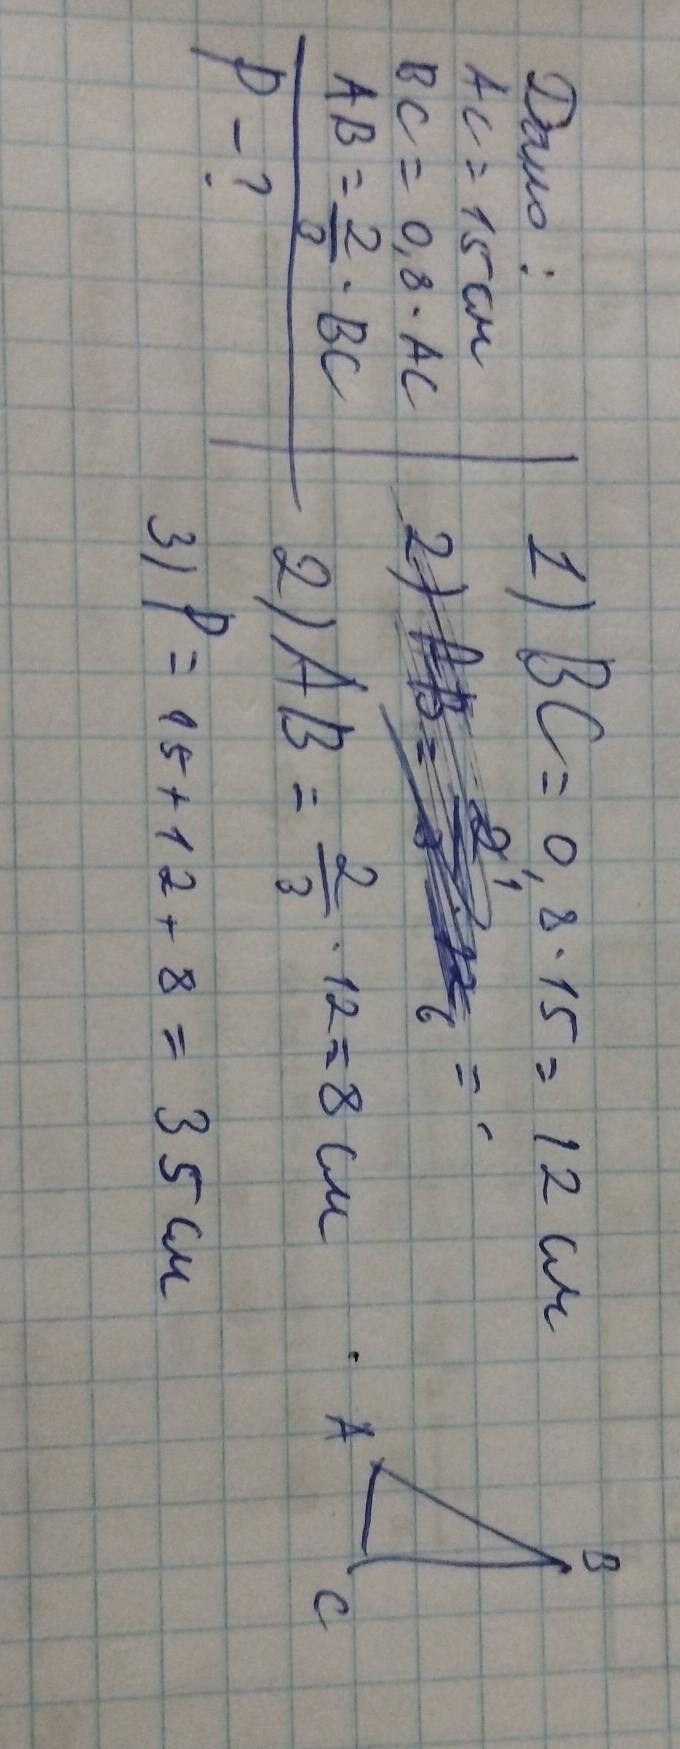 Дано:
AC = 15 см
BC = 0,8 · AC
AB = 2/3 · BC
P - ?
1) BC = 0,8 · 15 = 12 см
2)
2) AB = 2/3 · 12 = 8 см
3) P = 15 + 12 + 8 = 35 см
B
A
C